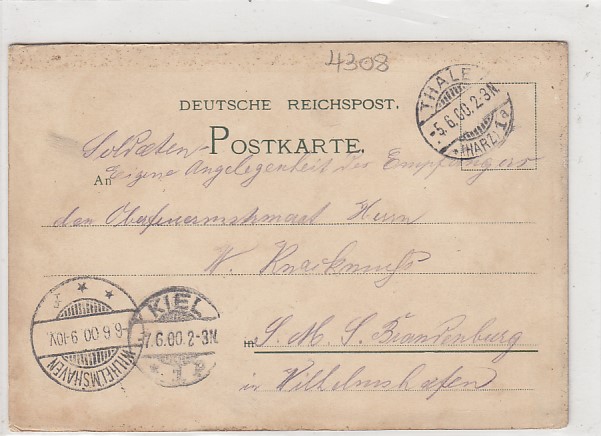 4308
DEUTSCHE REICHSPOST.
POSTKARTE.
THALE
-5.6.00.2-3N.
(HARZ) 1a
Soldaten-
An Eigene Angelegenheit des Empfängers
den Oberfeuermstrmaat Herrn
W.
KIEL
7.6.00.2-3N.
1
8.6.00.9-10V.
WILHELMSHAVEN
in S. M. S. Brandenburg
in Wilhelmshafen